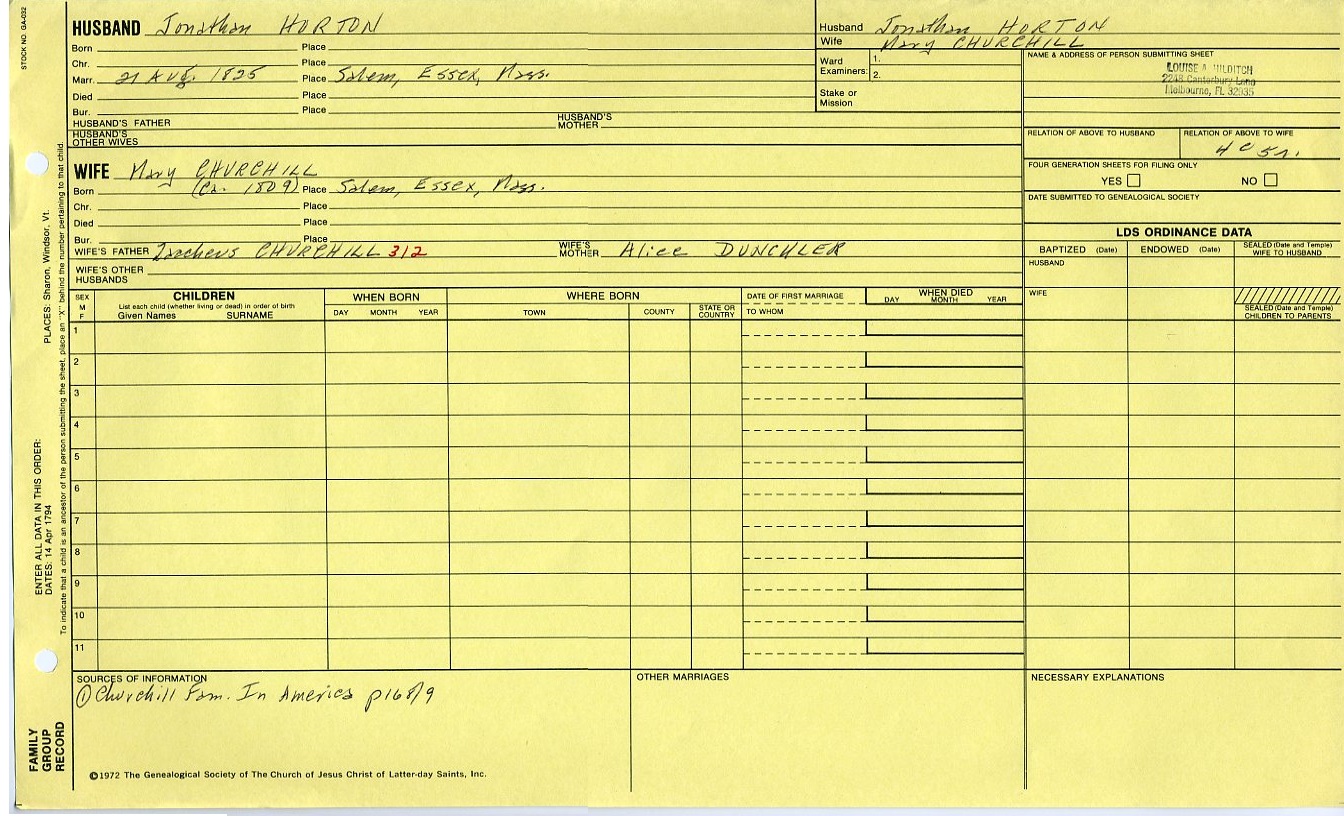 STOCK NO. GA-032
HUSBAND Jonathan HORTON
Born Place
Chr. Place
Marr. 21 Aug. 1825 Place Salem, Essex, Mass.
Died Place
Bur. Place
HUSBAND'S FATHER HUSBAND'S MOTHER
HUSBAND'S OTHER WIVES
WIFE Mary CHURCHILL
Born (Ca. 1809) Place Salem, Essex, Mass.
Chr. Place
Died Place
Bur. Place
WIFE'S FATHER Zacheus CHURCHILL 312 WIFE'S MOTHER Alice DUNCKLER
WIFE'S OTHER HUSBANDS
Husband Jonathan HORTON
Wife Mary CHURCHILL
Ward Examiners: 1.
2.
Stake or Mission
NAME & ADDRESS OF PERSON SUBMITTING SHEET
LOUISE A. HILDITCH
2248 Canterbury Lane
Melbourne, FL 32935
RELATION OF ABOVE TO HUSBAND RELATION OF ABOVE TO WIFE
4 C 5 r.
FOUR GENERATION SHEETS FOR FILING ONLY
YES NO
DATE SUBMITTED TO GENEALOGICAL SOCIETY
LDS ORDINANCE DATA
BAPTIZED (Date) ENDOWED (Date) SEALED (Date and Temple) WIFE TO HUSBAND
HUSBAND
WIFE
SEALED (Date and Temple) CHILDREN TO PARENTS
SEX M F
CHILDREN
List each child (whether living or dead) in order of birth
Given Names SURNAME
WHEN BORN
DAY MONTH YEAR
WHERE BORN
TOWN COUNTY STATE OR COUNTRY
DATE OF FIRST MARRIAGE
TO WHOM
WHEN DIED
DAY MONTH YEAR
1
2
3
4
5
6
7
8
9
10
11
SOURCES OF INFORMATION
① Churchill Fam. In America p168/9
OTHER MARRIAGES
NECESSARY EXPLANATIONS
©1972 The Genealogical Society of The Church of Jesus Christ of Latter-day Saints, Inc.
FAMILY GROUP RECORD
ENTER ALL DATA IN THIS ORDER:
DATES: 14 Apr 1794
PLACES: Sharon, Windsor, Vt.
To indicate that a child is an ancestor of the person submitting the sheet, place an "X" behind the number pertaining to that child.